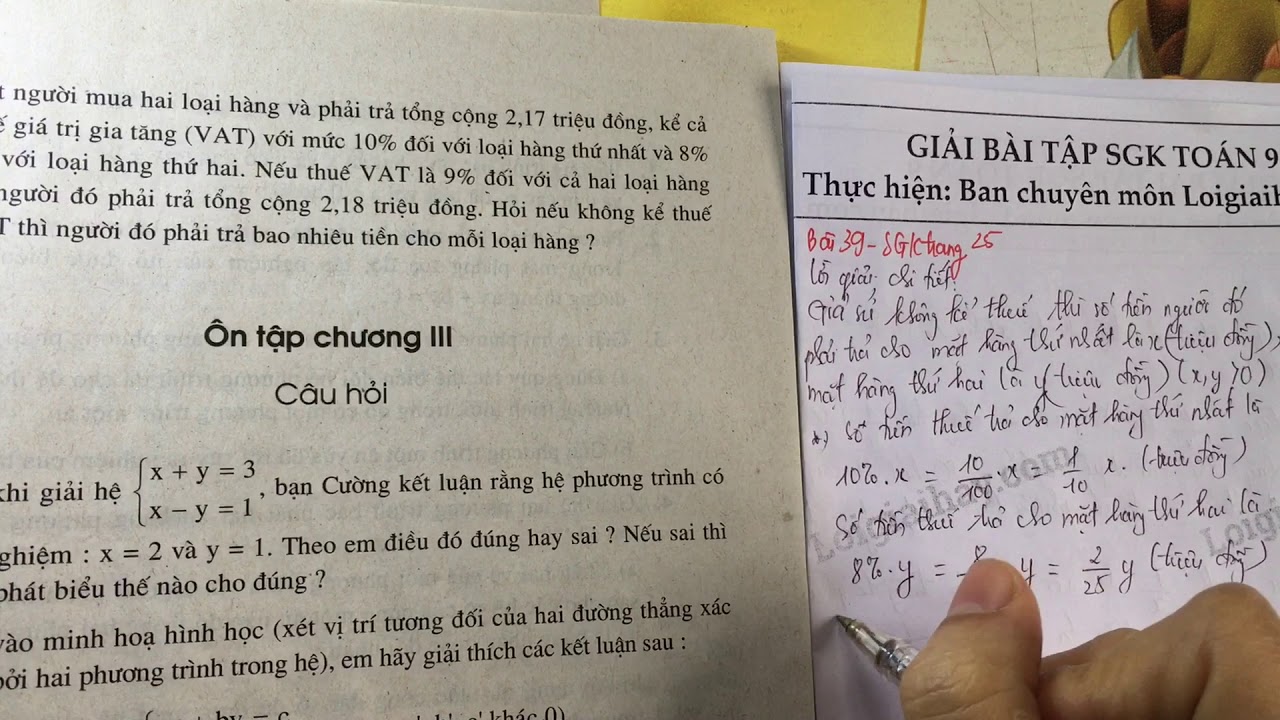 t người mua hai loại hàng và phải trả tổng cộng 2,17 triệu đồng, kể cả
ế giá trị gia tăng (VAT) với mức 10% đối với loại hàng thứ nhất và 8%
với loại hàng thứ hai. Nếu thuế VAT là 9% đối với cả hai loại hàng
người đó phải trả tổng cộng 2,18 triệu đồng. Hỏi nếu không kể thuế
T thì người đó phải trả bao nhiêu tiền cho mỗi loại hàng ?
Ôn tập chương III
Câu hỏi
khi giải hệ { x + y = 3
x − y = 1 , bạn Cường kết luận rằng hệ phương trình có
nghiệm : x = 2 và y = 1. Theo em điều đó đúng hay sai ? Nếu sai thì
phát biểu thế nào cho đúng ?
vào minh hoạ hình học (xét vị trí tương đối của hai đường thẳng xác
bởi hai phương trình trong hệ), em hãy giải thích các kết luận sau :
khác 0)
GIẢI BÀI TẬP SGK TOÁN 9
Thực hiện: Ban chuyên môn Loigiaih
Bài 39 - SGK trang 25
Lời giải chi tiết:
Giả sử không kể thuế thì số tiền người đó
phải trả cho mặt hàng thứ nhất là x (triệu đồng),
mặt hàng thứ hai là y (triệu đồng) (x, y > 0)
*) Số tiền thuế trả cho mặt hàng thứ nhất là
10% . x = 10/100 x = 1/10 x. (triệu đồng)
Số tiền thuế trả cho mặt hàng thứ hai là
8% . y = 8 y = 2/25 y (triệu đồng)
Loigiaihay.com
Loigi